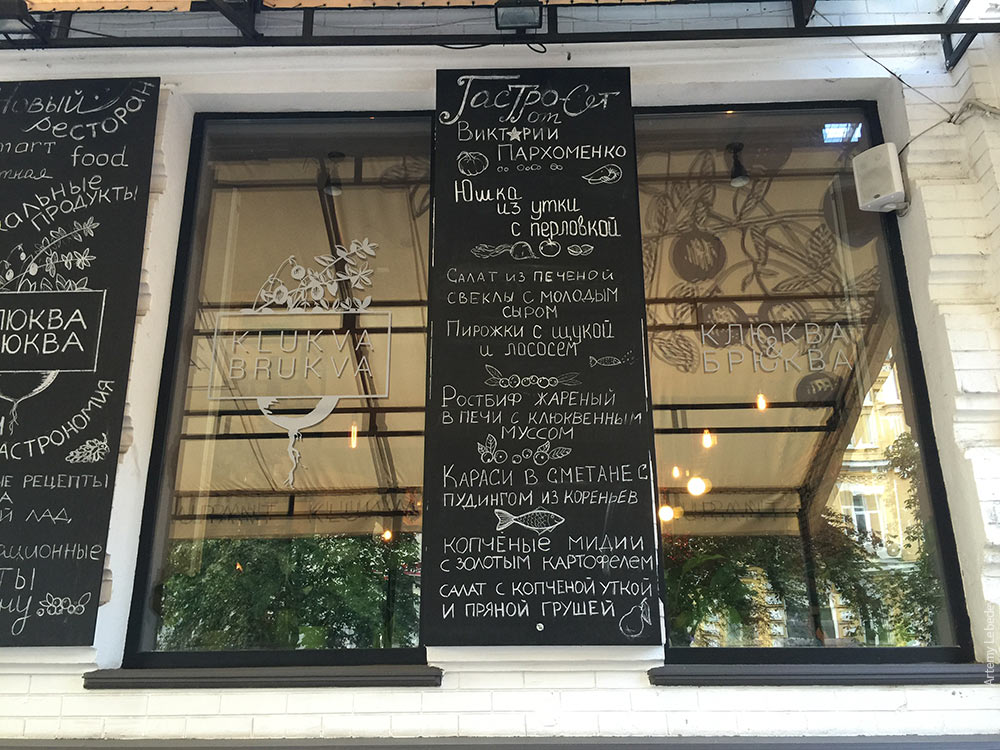 Новый
ресторан
mart food
тная
альные
продукты
люква
рюква
астрономия
ые рецепты
й лад,
ационные
ты
ну
KLUKVA
BRUKVA
Гастро-Сет
от
Виктории
Пархоменко
Юшка
из утки
с перловкой
Салат из печеной
свеклы с молодым
сыром
Пирожки с щукой
и лососем
Ростбиф жареный
в печи с клюквенным
муссом
Караси в сметане с
пудингом из кореньев
копчёные мидии
с золотым картофелем
салат с копченой уткой
и пряной грушей
КЛЮКВА
&
БРЮКВА
Artemy Lebedev